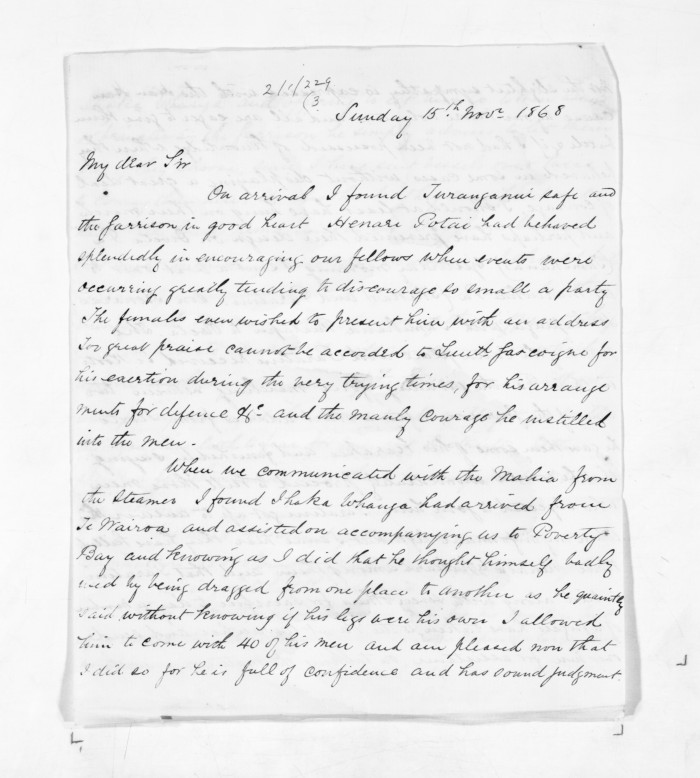 2/1/229
(3.
Sunday 15th Novr 1868
My dear Sir
On arrival I found Turanganui safe and
the Garrison in good heart Henare Potai had behaved
splendidly in encouraging our fellows when events were
occurring greatly tending to discourage so small a party
The females even wished to present him with an address
Too great praise cannot be accorded to Lieutt Gascoigne for
his exertion during the very trying times, for his arrange
ments for defence &c and the manly courage he instilled
into the men.
When we communicated with the Mahia from
the Steamer I found Ihaka Whanga had arrived from
Te Wairoa and assisted on accompanying us to Poverty
Bay and knowing as I did that he thought himself badly
used by being dragged from one place to another as he quaintly
said without knowing if his legs were his own I allowed
him to come with 40 of his men and am pleased now that
I did so for he is full of confidence and has sound judgment.